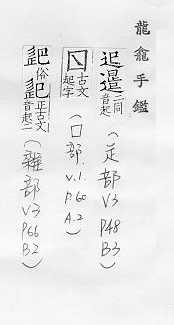 龍龕手鑑
二同音起（辵部 V3 P48 B3）
古文起字（口部 V.1 P.60 A.2）
俗 正古文音起二（雜部 V3 P66 B2）